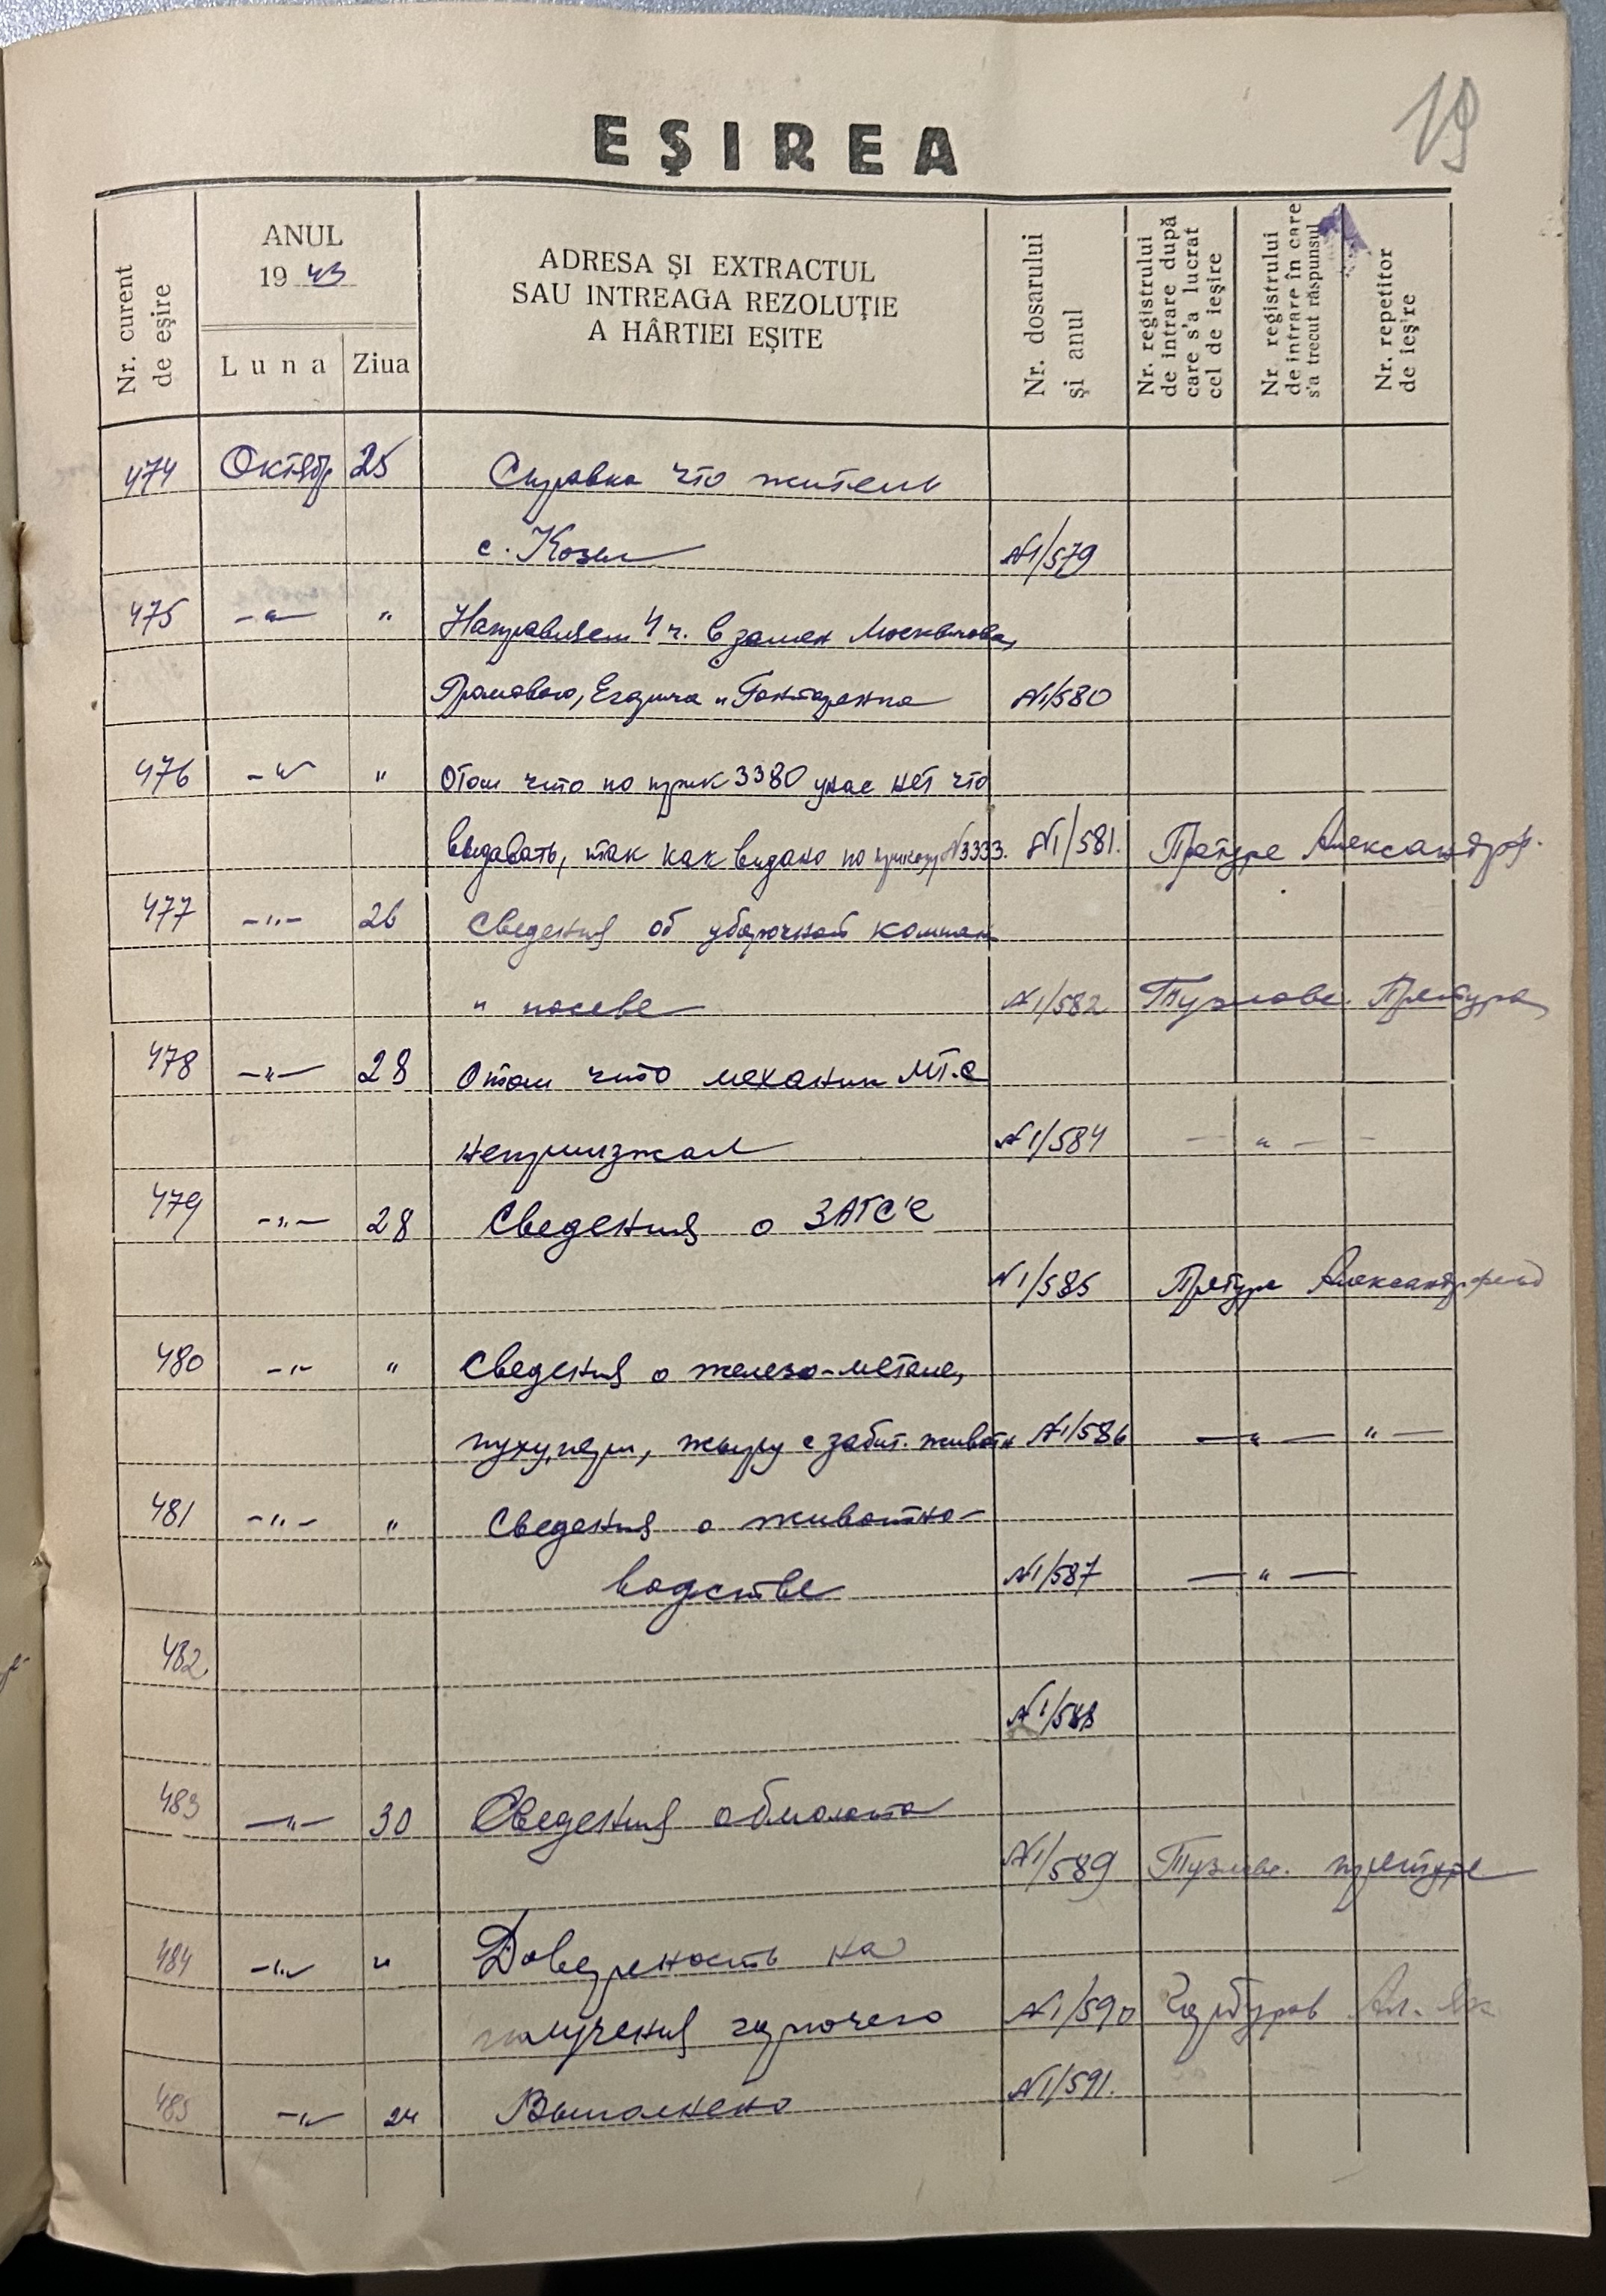 19
EŞIREA
Nr. curent de eşire
ANUL
19 43
Luna
Ziua
ADRESA ŞI EXTRACTUL
SAU INTREAGA REZOLUŢIE
A HÂRTIEI EŞITE
Nr. dosarului şi anul
Nr. registrului de intrare după care s'a lucrat cel de ieşire
Nr. registrului de intrare în care s'a trecut răspunsul
Nr. repetitor de ieşire
474 Октябр 25 Справка что житель
с. Козы N1/579
475 -"- " Направляем 4 ч. в замен Москвичова,
N1/580
476 -"- " Отом что по прик 3380 унас нет что
выдавать, так как видано по приказу N3333. N1/581. Претуре Александрф.
477 -"- 26 Сведения об уборочной компан
и посеве N1/582 Тузловс. Претура
478 -"- 28 Отом что механик МТ.С
неприизжал N1/584 — " —
479 -"- 28 Сведения о ЗАГС'е
N1/585 Претуре Александрфельд
480 -"- " Сведения о железо-метале,
пуху, пери, жыру с забит. животн N1/586 — " — " —
481 -"- " Сведения о животно-
водстве N1/587 — " —
482.
N1/588
483 -"- 30 Сведения обмолота
N1/589 Тузловс. претуре
484 -"- " Доверность на
получения горючего N1/590
485 -"- Выполнено N1/591.